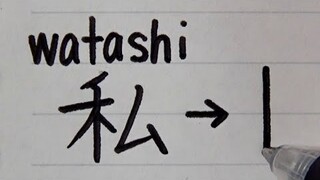 watashi
私→I